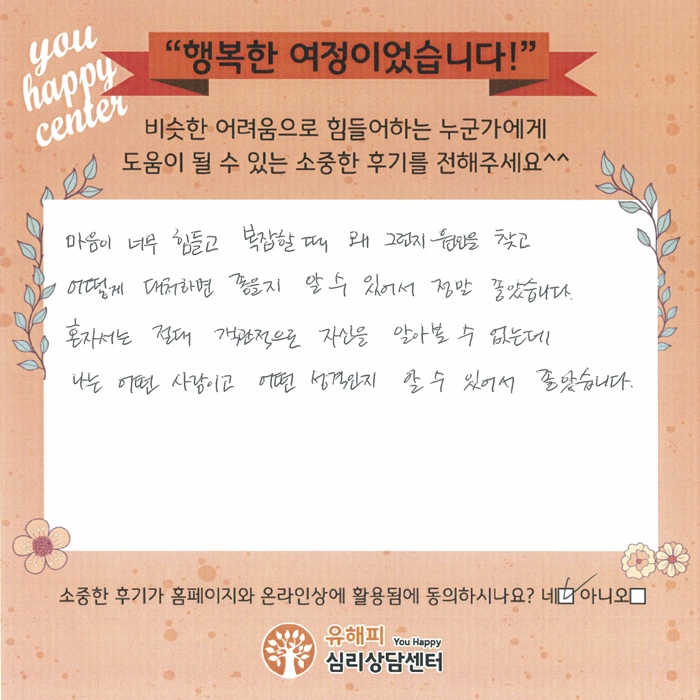 you
happy
center
“행복한 여정이었습니다!”
비슷한 어려움으로 힘들어하는 누군가에게
도움이 될 수 있는 소중한 후기를 전해주세요^^
마음이 너무 힘들고 복잡할 때, 왜 그런지 원인을 찾고
어떻게 대처하면 좋을지 알 수 있어서 정말 좋았습니다.
혼자서는 절대 객관적으로 자신을 알아볼 수 없는데
나는 어떤 사람이고 어떤 성격인지 알 수 있어서 좋았습니다.
소중한 후기가 홈페이지와 온라인상에 활용됨에 동의하시나요? 네☑ 아니오□
유해피 You Happy
심리상담센터